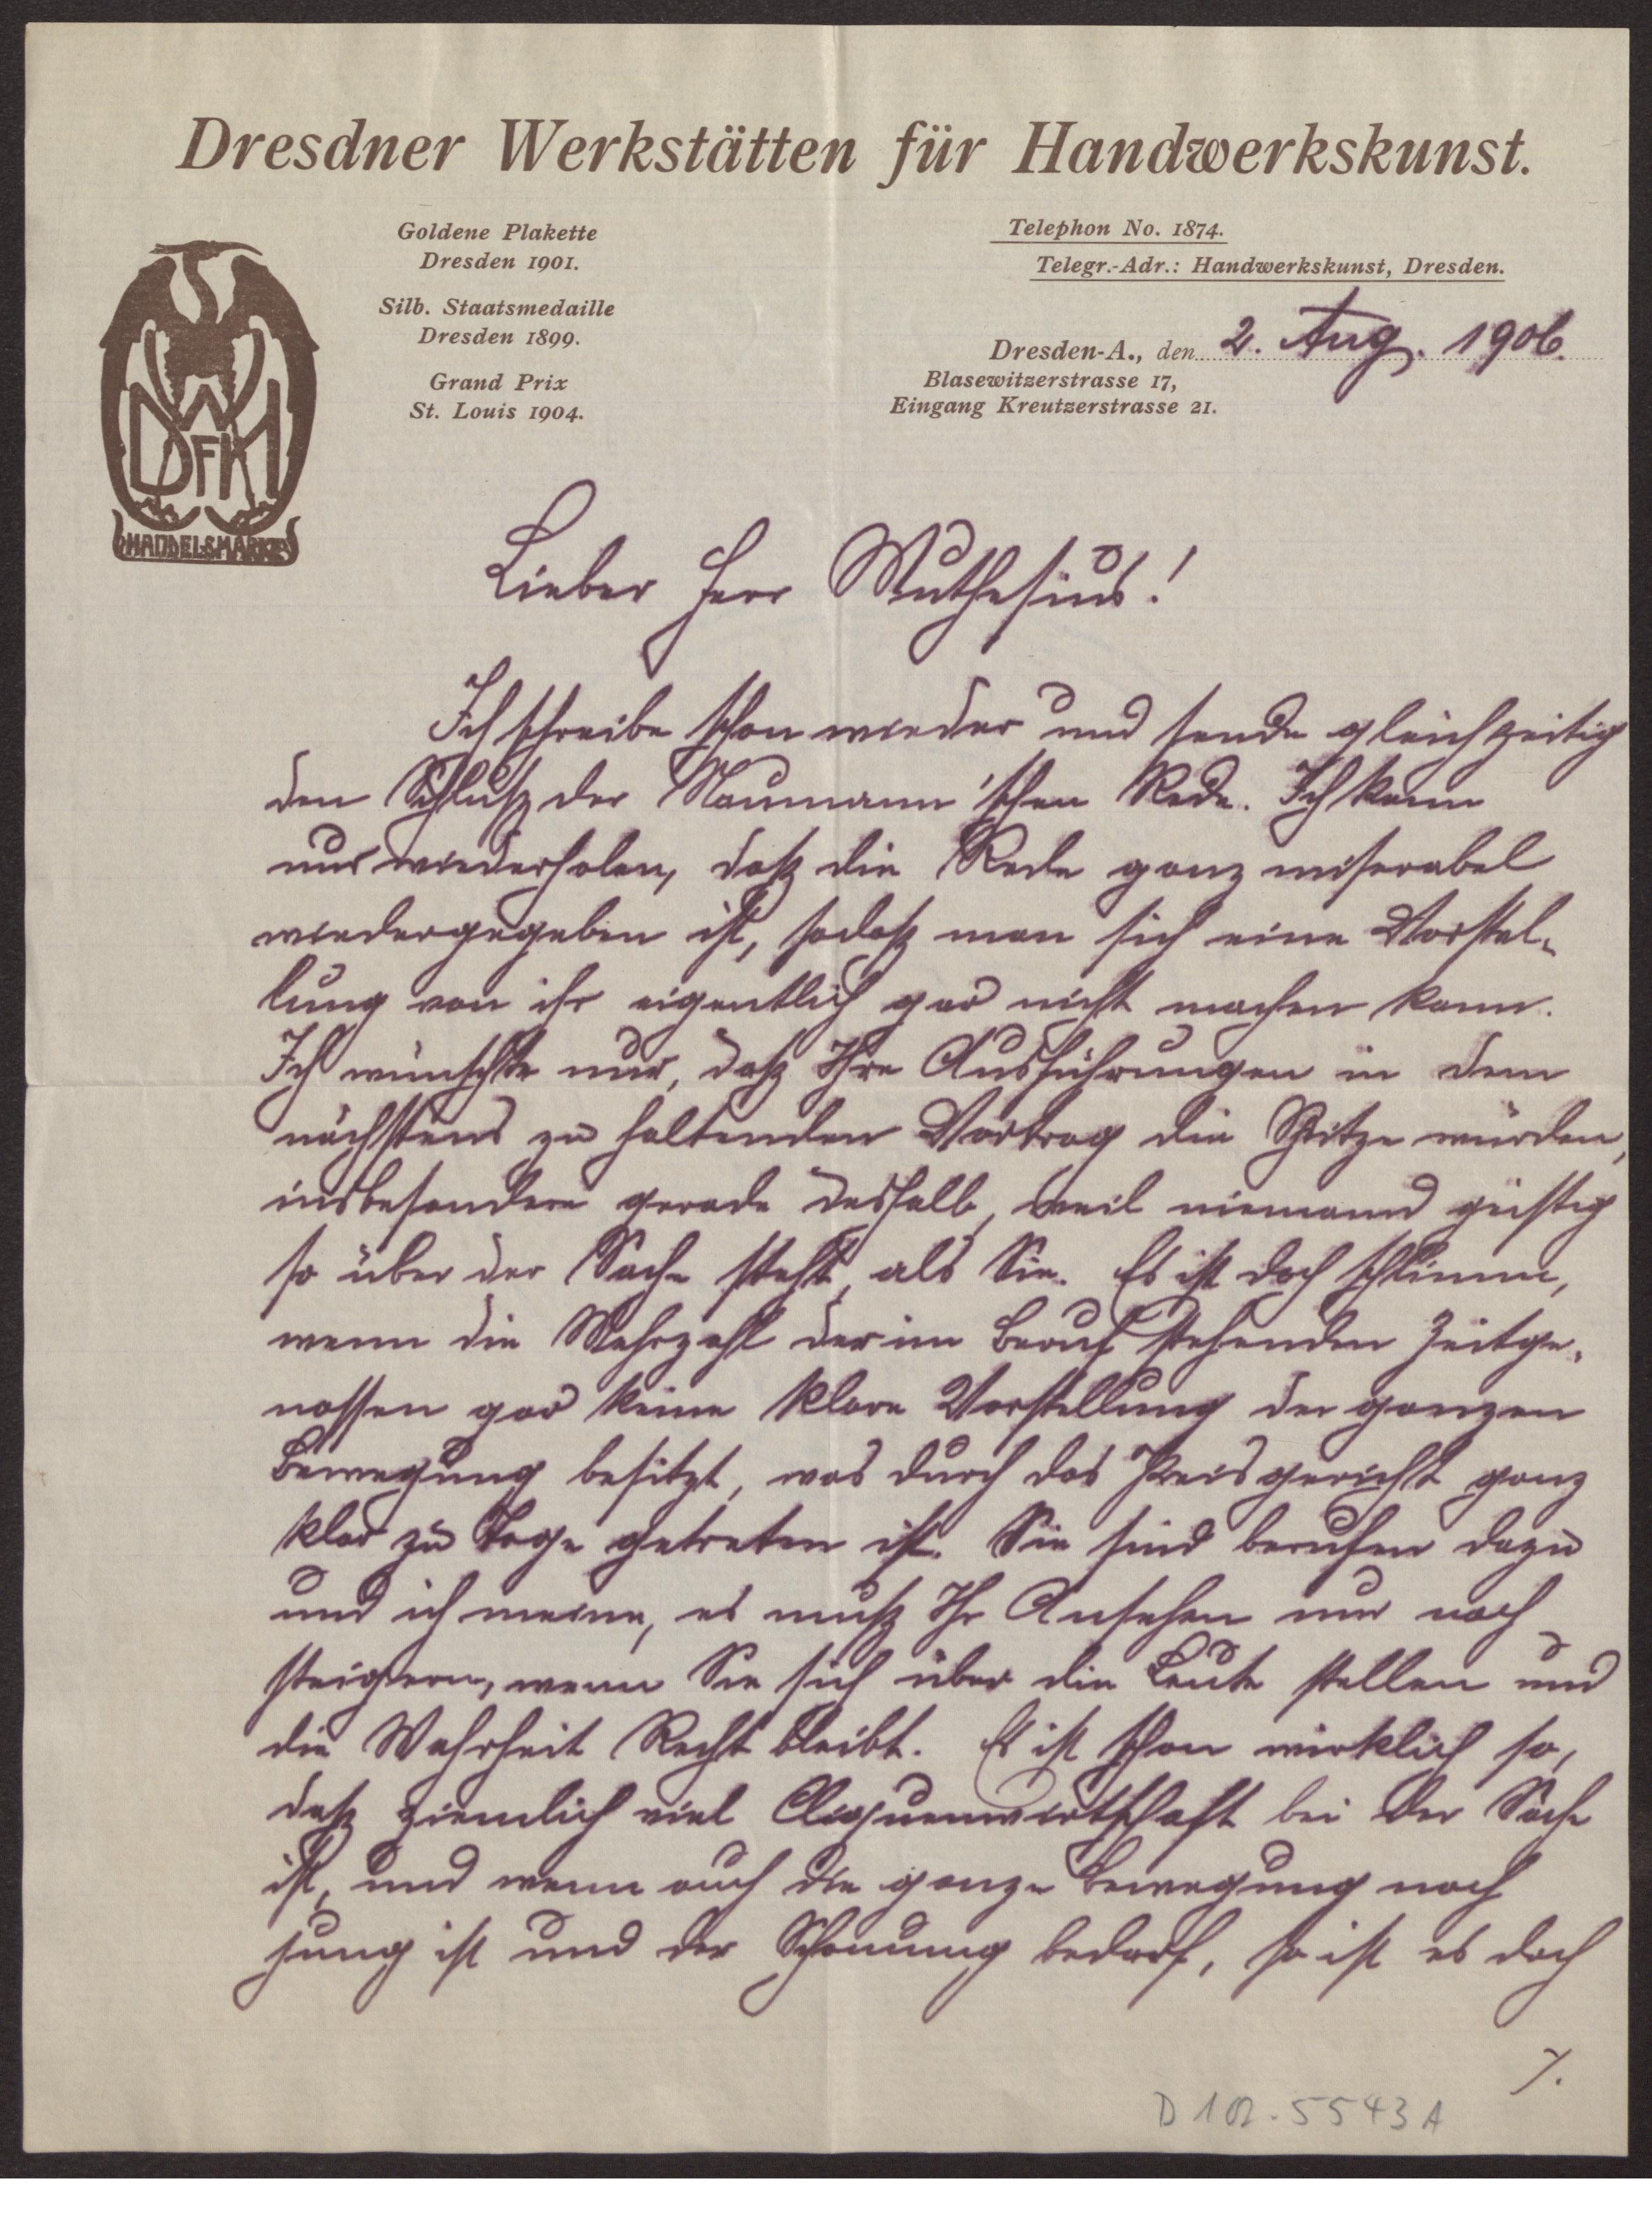 Dresdner Werkstätten für Handwerkskunst.
Goldene Plakette
Dresden 1901.
Silb. Staatsmedaille
Dresden 1899.
Grand Prix
St. Louis 1904.
DWFHK
HANDELSMARKE
Telephon No. 1874.
Telegr.-Adr.: Handwerkskunst, Dresden.
Dresden-A., den 2. Aug. 1906.
Blasewitzerstrasse 17,
Eingang Kreutzerstrasse 21.
Lieber Herr Muthesius!
Ich schreibe schon wieder und sende gleichzeitig
den Schluß der Naumann'schen Rede. Ich kann
nur wiederholen, daß die Rede ganz miserabel
wiedergegeben ist, sodaß man sich eine Vorstel-
lung von ihr eigentlich gar nicht machen kann.
Ich wünschte nur, daß Ihre Ausführungen in dem
nächstens zu haltenden Vortrag die Spitze würden,
insbesondere gerade deshalb, weil niemand geistig
so über der Sache steht, als Sie. Es ist doch schlimm,
wenn die Mehrzahl der im Beruf stehenden Zeitge-
nossen gar keine klare Vorstellung der ganzen
Bewegung besitzt, was durch das Preisgericht ganz
klar zu Tage getreten ist. Sie sind berufen dazu
und ich meine, es muß Ihr Ansehen nur noch
steigern, wenn Sie sich über die Leute stellen und
die Wahrheit Recht bleibt. Es ist schon wirklich so,
daß ziemlich viel Cliquenwirtschaft bei der Sache
ist, und wenn auch die ganze Bewegung noch
jung ist und der Schonung bedarf, so ist es doch
/.
D 102-5543 A